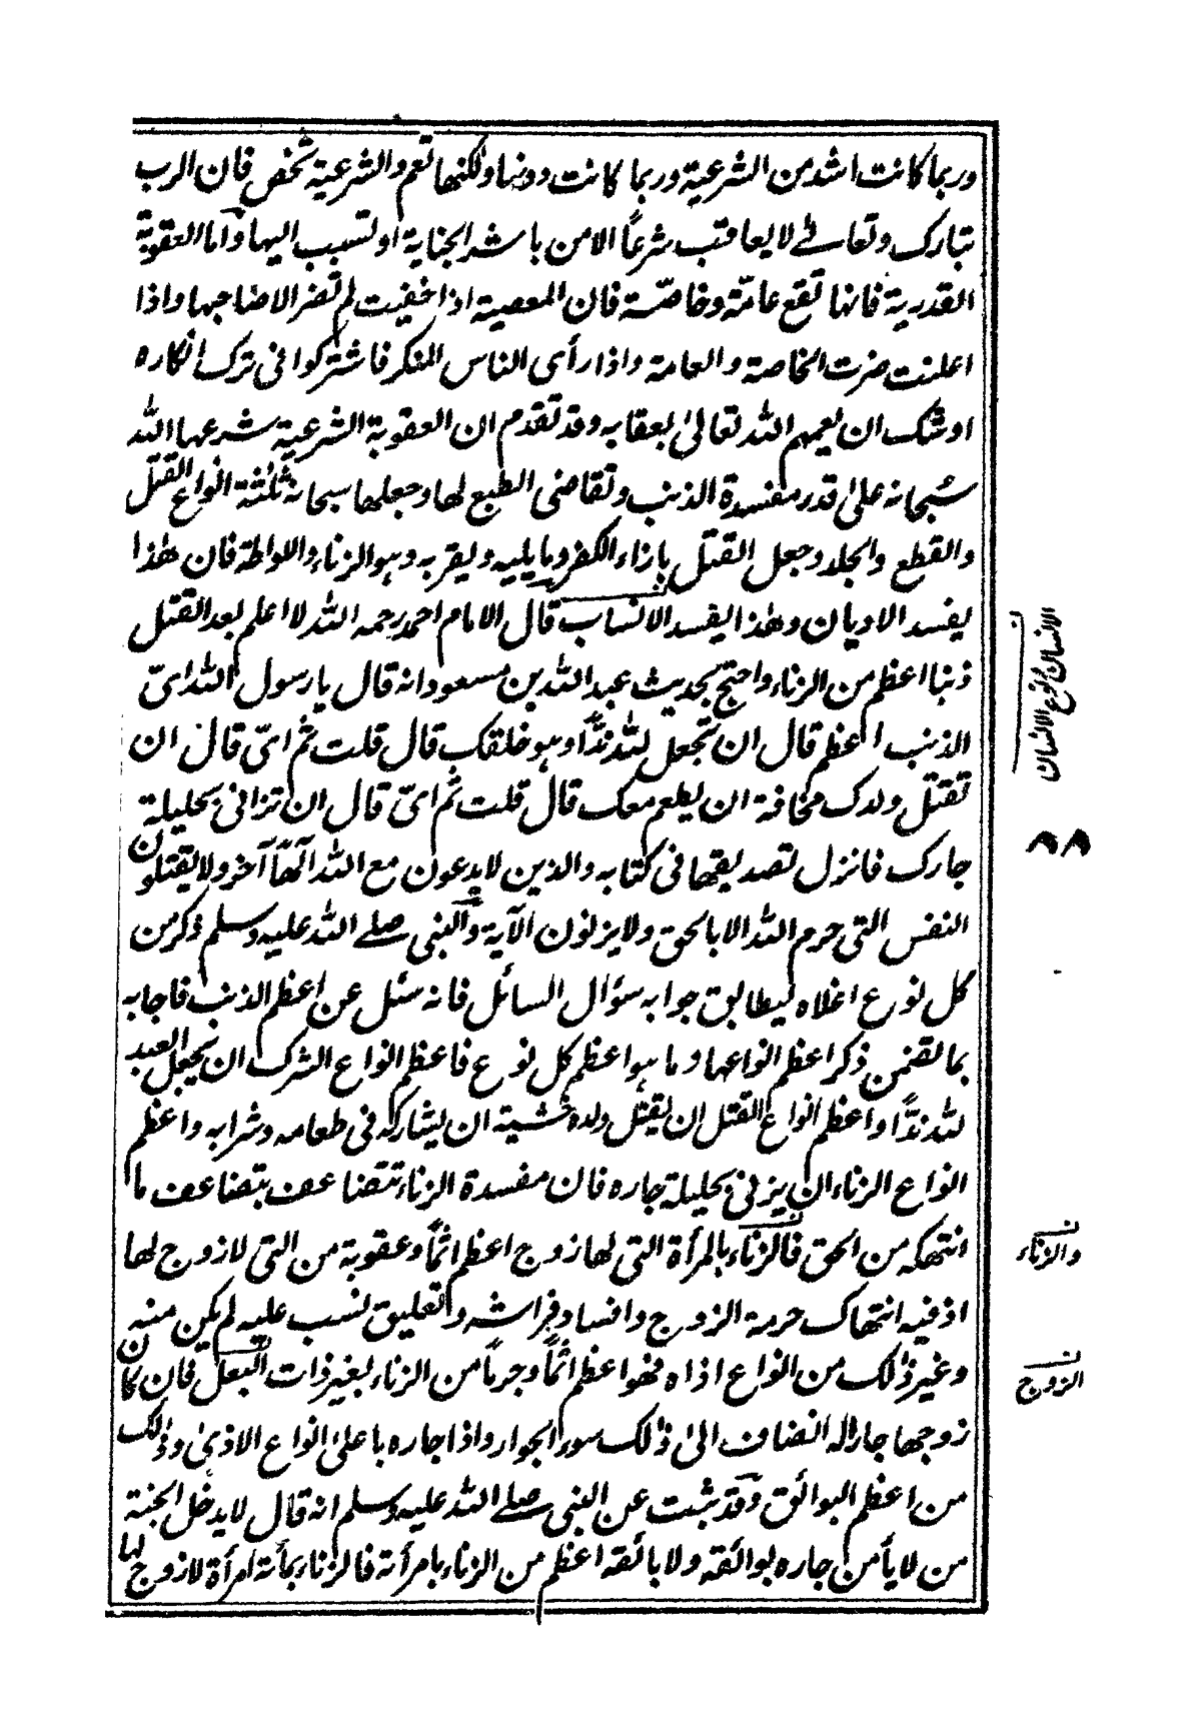 وربما كانت اشد من الشرعية وربما كانت دونها ولكنها تعم والشرعية تخص فان الرب
تبارك وتعالى لا يعاقب شرعاً الا من باشر الجناية او تسبب اليها واما العقوبة
القدرية فانها تقع عامّة وخاصّة فان المعصية اذا خفيت لم تضر الا صاحبها واذا
اعلنت ضرت الخاصة والعامة واذا رأى الناس المنكر فاشتركوا فى ترك انكاره
اوشك ان يعمهم الله تعالىٰ بعقابه وقد تقدم ان العقوبة الشرعية شرعها الله
سُبحانه علىٰ قدر مفسدة الذنب وتقاضى الطبع لها وجعلها سبحانه ثلٰثة انواع القتل
والقطع والجلد وجعل القتل بازاء الكفر وما يليه ويقربه وهو الزناء واللواطة فان هٰذا
يفسد الاديان وهٰذا يفسد الانساب قال الامام احمد رحمه الله لا اعلم بعد القتل
ذنبا اعظم من الزناء واحتج بحديث عبد الله بن مسعود انه قال يا رسول الله اىّ
الذنب اعظم قال ان تجعل لله ندّاً وهو خلقك قال قلت ثم اىّ قال ان
تقتل ولدك مخافة ان يطعم معك قال قلت ثم اىّ قال ان تزانى بحليلة
جارك فانزل تصديقها فى كتابه والذين لا يدعون مع الله الٰهاً آخر ولا يقتلون
النفس التى حرم الله الا بالحق ولا يزنون الآية والنبى صلے الله عليه وسلم ذكر من
كل نوع اعلاه ليطابق جوابه سؤال السائل فانه سئل عن اعظم الذنب فاجابه
بما تضمن ذكر اعظم انواعها وما هو اعظم كل نوع فاعظم انواع الشرك ان يجعل العبد
لله ندّاً واعظم انواع القتل ان يقتل ولده خشية ان يشاركه فى طعامه وشرابه واعظم
انواع الزناء ان يزنى بحليلة جاره فان مفسدة الزناء تتضاعف بتضاعف ما
انتهكه من الحق فالزناء بالمرأة التى لها زوج اعظم اثماً وعقوبة من التى لا زوج لها
اذ فيه انتهاك حرمة الزوج وافساد فراشه وتعليق نسب عليه لم يكن منه
وغير ذٰلك من انواع اذاه فهو اعظم اثماً وجرماً من الزناء بغير ذات البعل فان كان
زوجها جارا له انضاف الىٰ ذٰلك سوء الجوار واذا جاره باعلىٰ انواع الاذىٰ وذٰلك
من اعظم البوائق وقد ثبت عن النبى صلے الله عليه وسلم انه قال لا يدخل الجنة
من لا يأمن جاره بوائقه ولا بائقه اعظم من الزناء بامرأته فالزناء بمأئة امرأة لا زوج لها
الانسان نوع الانسان
٨٨
والزناء
الزوج